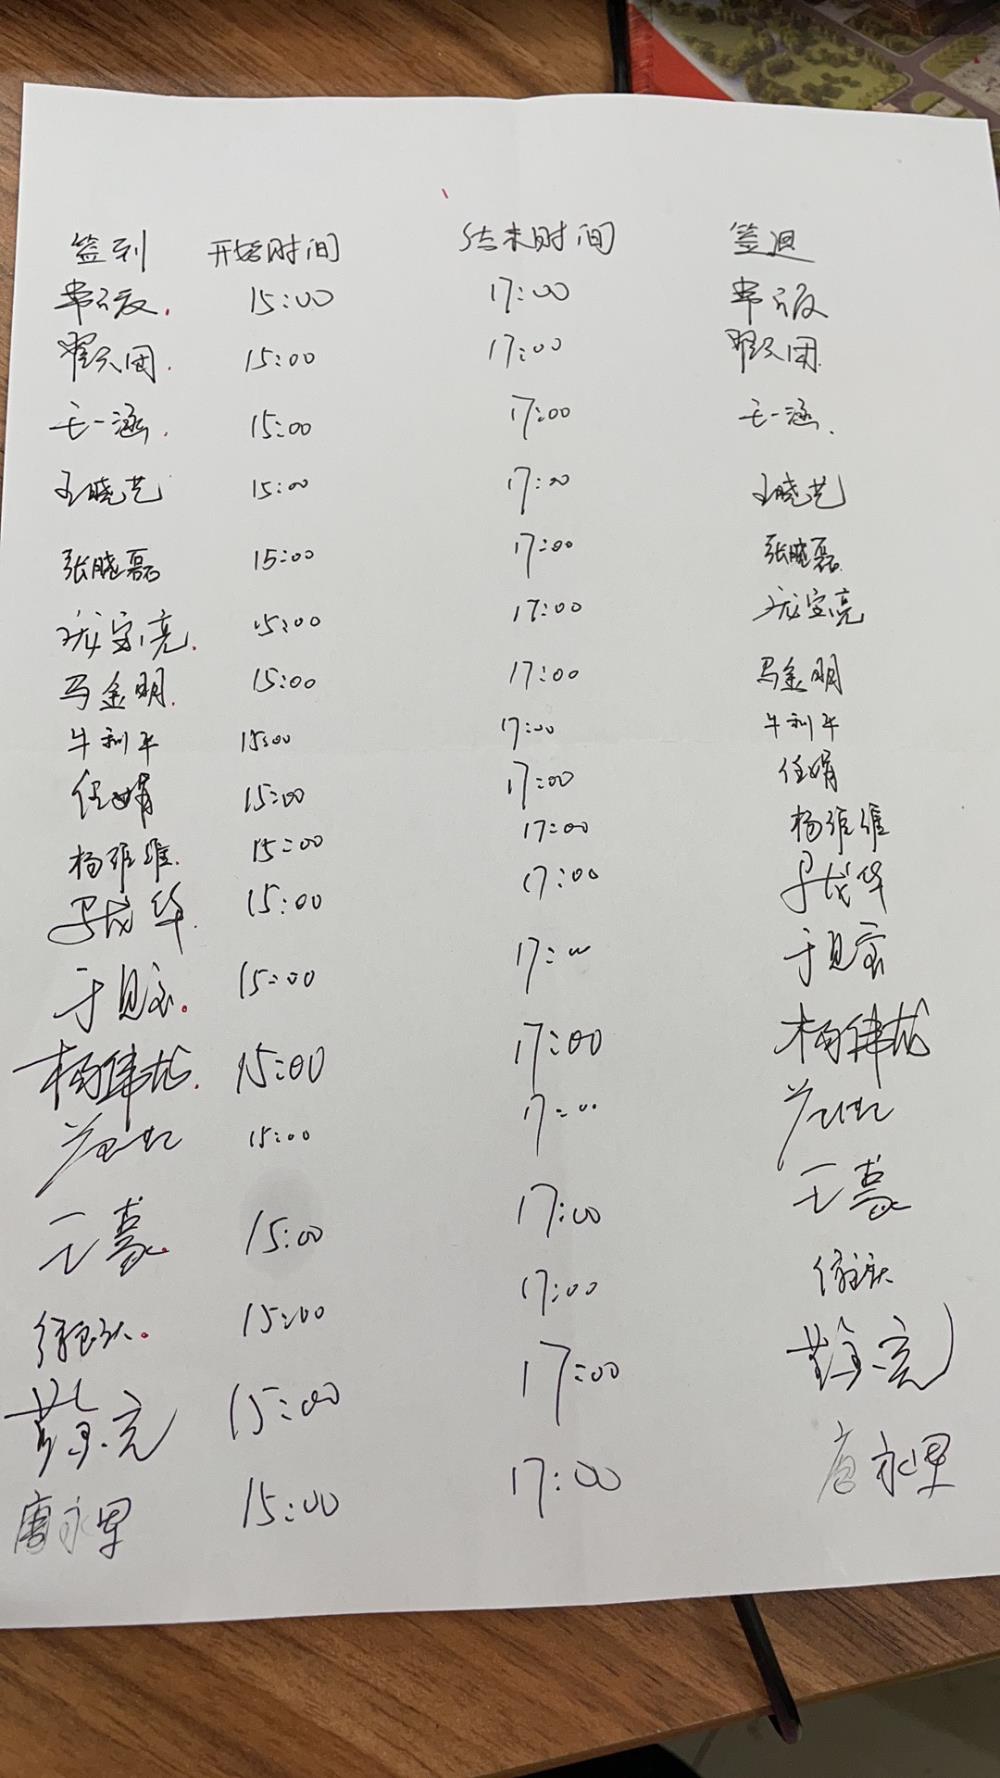 签到 开始时间 结束时间 签退
15:00 17:00
翟天团 15:00 17:00 翟天团
王一涵 15:00 17:00 王一涵
王晓艺 15:00 17:00 王晓艺
张晓磊 15:00 17:00 张晓磊
庞宝亮 15:00 17:00 庞宝亮
马金明 15:00 17:00 马金明
牛利平 15:00 17:00 牛利平
任娟 15:00 17:00 任娟
杨维维 15:00 17:00 杨维维
马成华 15:00 17:00 马成华
于见宝 15:00 17:00 于见宝
杨伟龙 15:00 17:00 杨伟龙
15:00 17:00
王豪 15:00 17:00 王豪
15:00 17:00
15:00 17:00
唐永军 15:00 17:00 唐永军